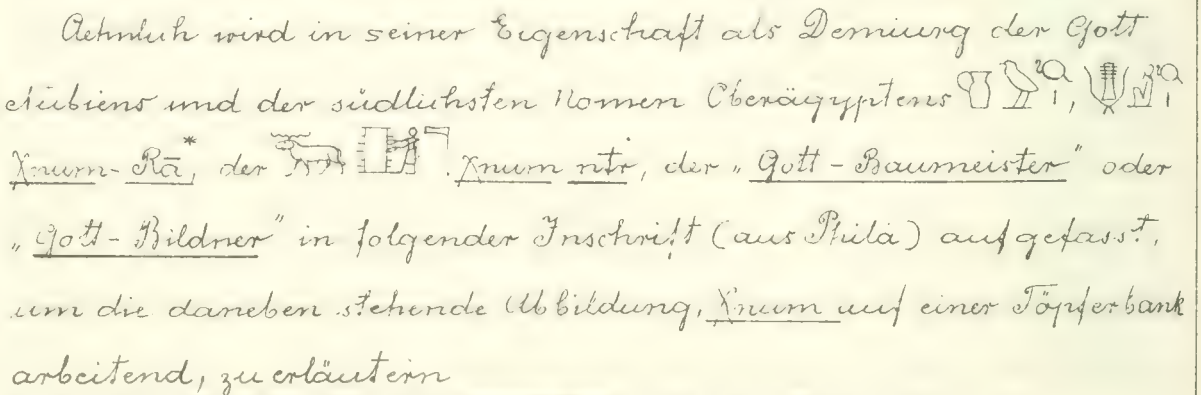 Aehnlich wird in seiner Eigenschaft als Demiurg der Gott
Nubiens und der südlichsten Nomen Oberägyptens
Xnum-Rā*, der Xnum ntr, der „Gott-Baumeister" oder
„Gott-Bildner" in folgender Inschrift (aus Philä) aufgefasst,
um die daneben stehende Abbildung, Xnum auf einer Töpferbank
arbeitend, zu erläutern